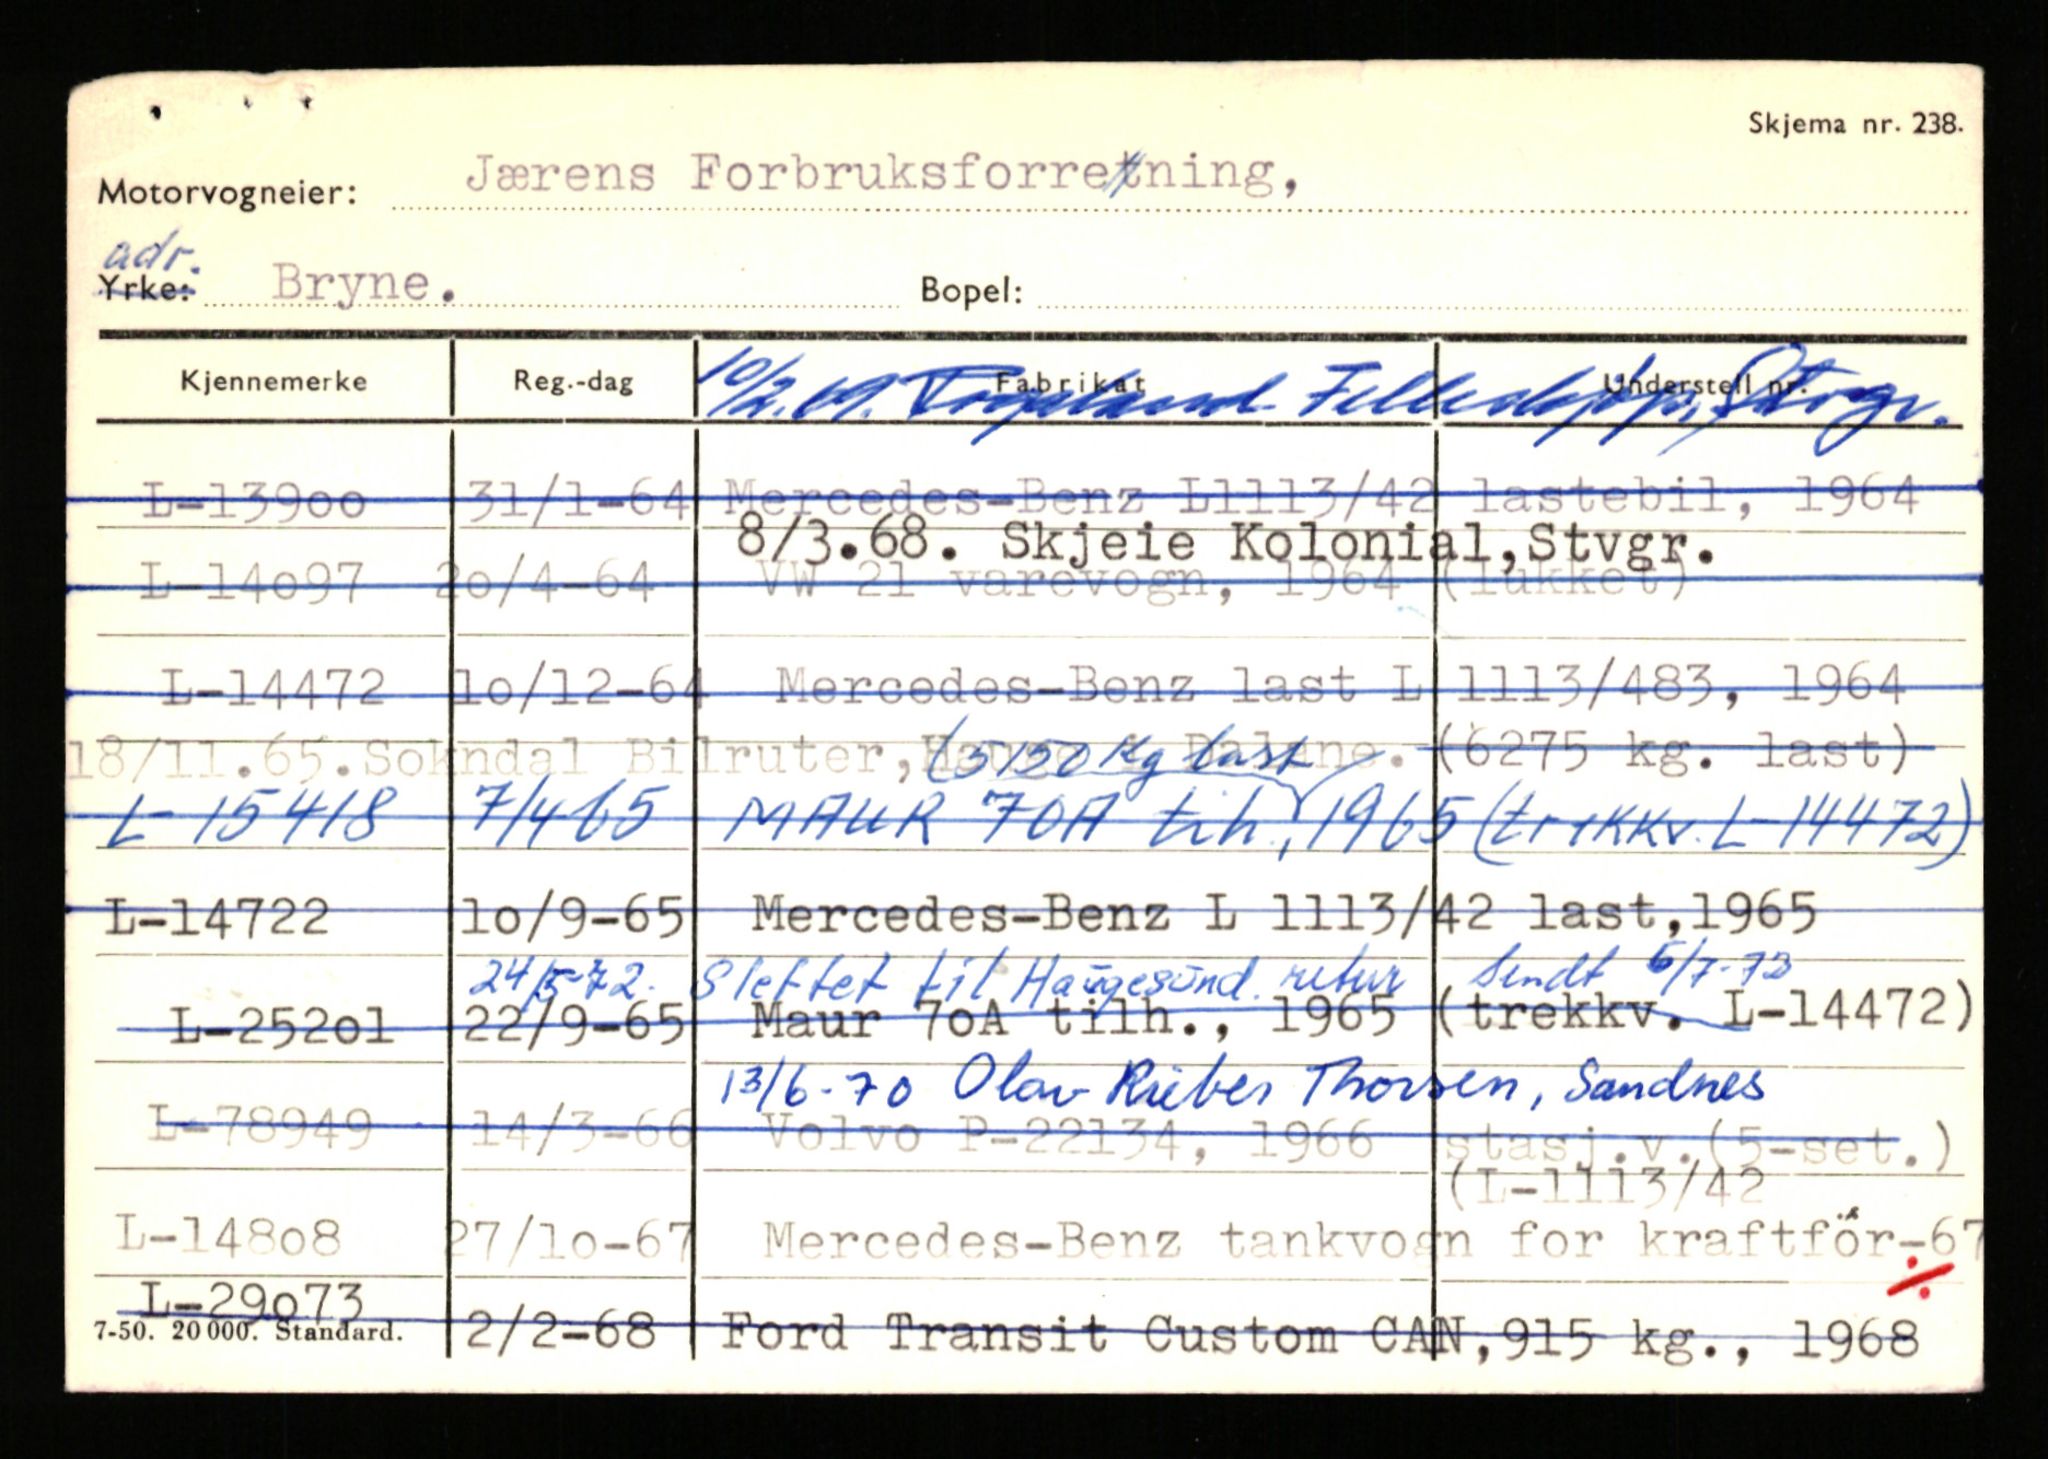 Skjema nr. 238.
Motorvogneier: Jærens Forbruksforretning,
adr.
Yrke: Bryne. Bopel:
Kjennemerke Reg.-dag Fabrikat Understell nr.
10/2.69. Stvgr.
L-13900 31/1-64 Mercedes-Benz L1113/42 lastebil, 1964
8/3.68. Skjeie Kolonial,Stvgr.
L-14o97 2o/4-64 VW 21 varevogn, 1964 (lukket)
L-14472 lo/12-64 Mercedes-Benz last L 1113/483, 1964
18/11.65.Sokndal Bilruter, Hauge i Dalane. (6275 kg. last)
(5150 kg last
L-15418 7/4 65 MAUR 70A tilh., 1965 (trekkv. L-14472)
L-14722 lo/9-65 Mercedes-Benz L 1113/42 last,1965
24/5-72. Slettet til Haugesund. retur sendt 6/7-72
L-252o1 22/9-65 Maur 7oA tilh., 1965 (trekkv. L-14472)
13/6-70 Olav Rieber Thorsen, Sandnes
L-78949 14/3-66 Volvo P-22134, 1966 stasj.v.(5-set.)
(L-1113/42
L-148o8 27/lo-67 Mercedes-Benz tankvogn for kraftfôr-67
L-29o73
7-50. 20 000. Standard. 2/2-68 Ford Transit Custom CAN,915 kg., 1968